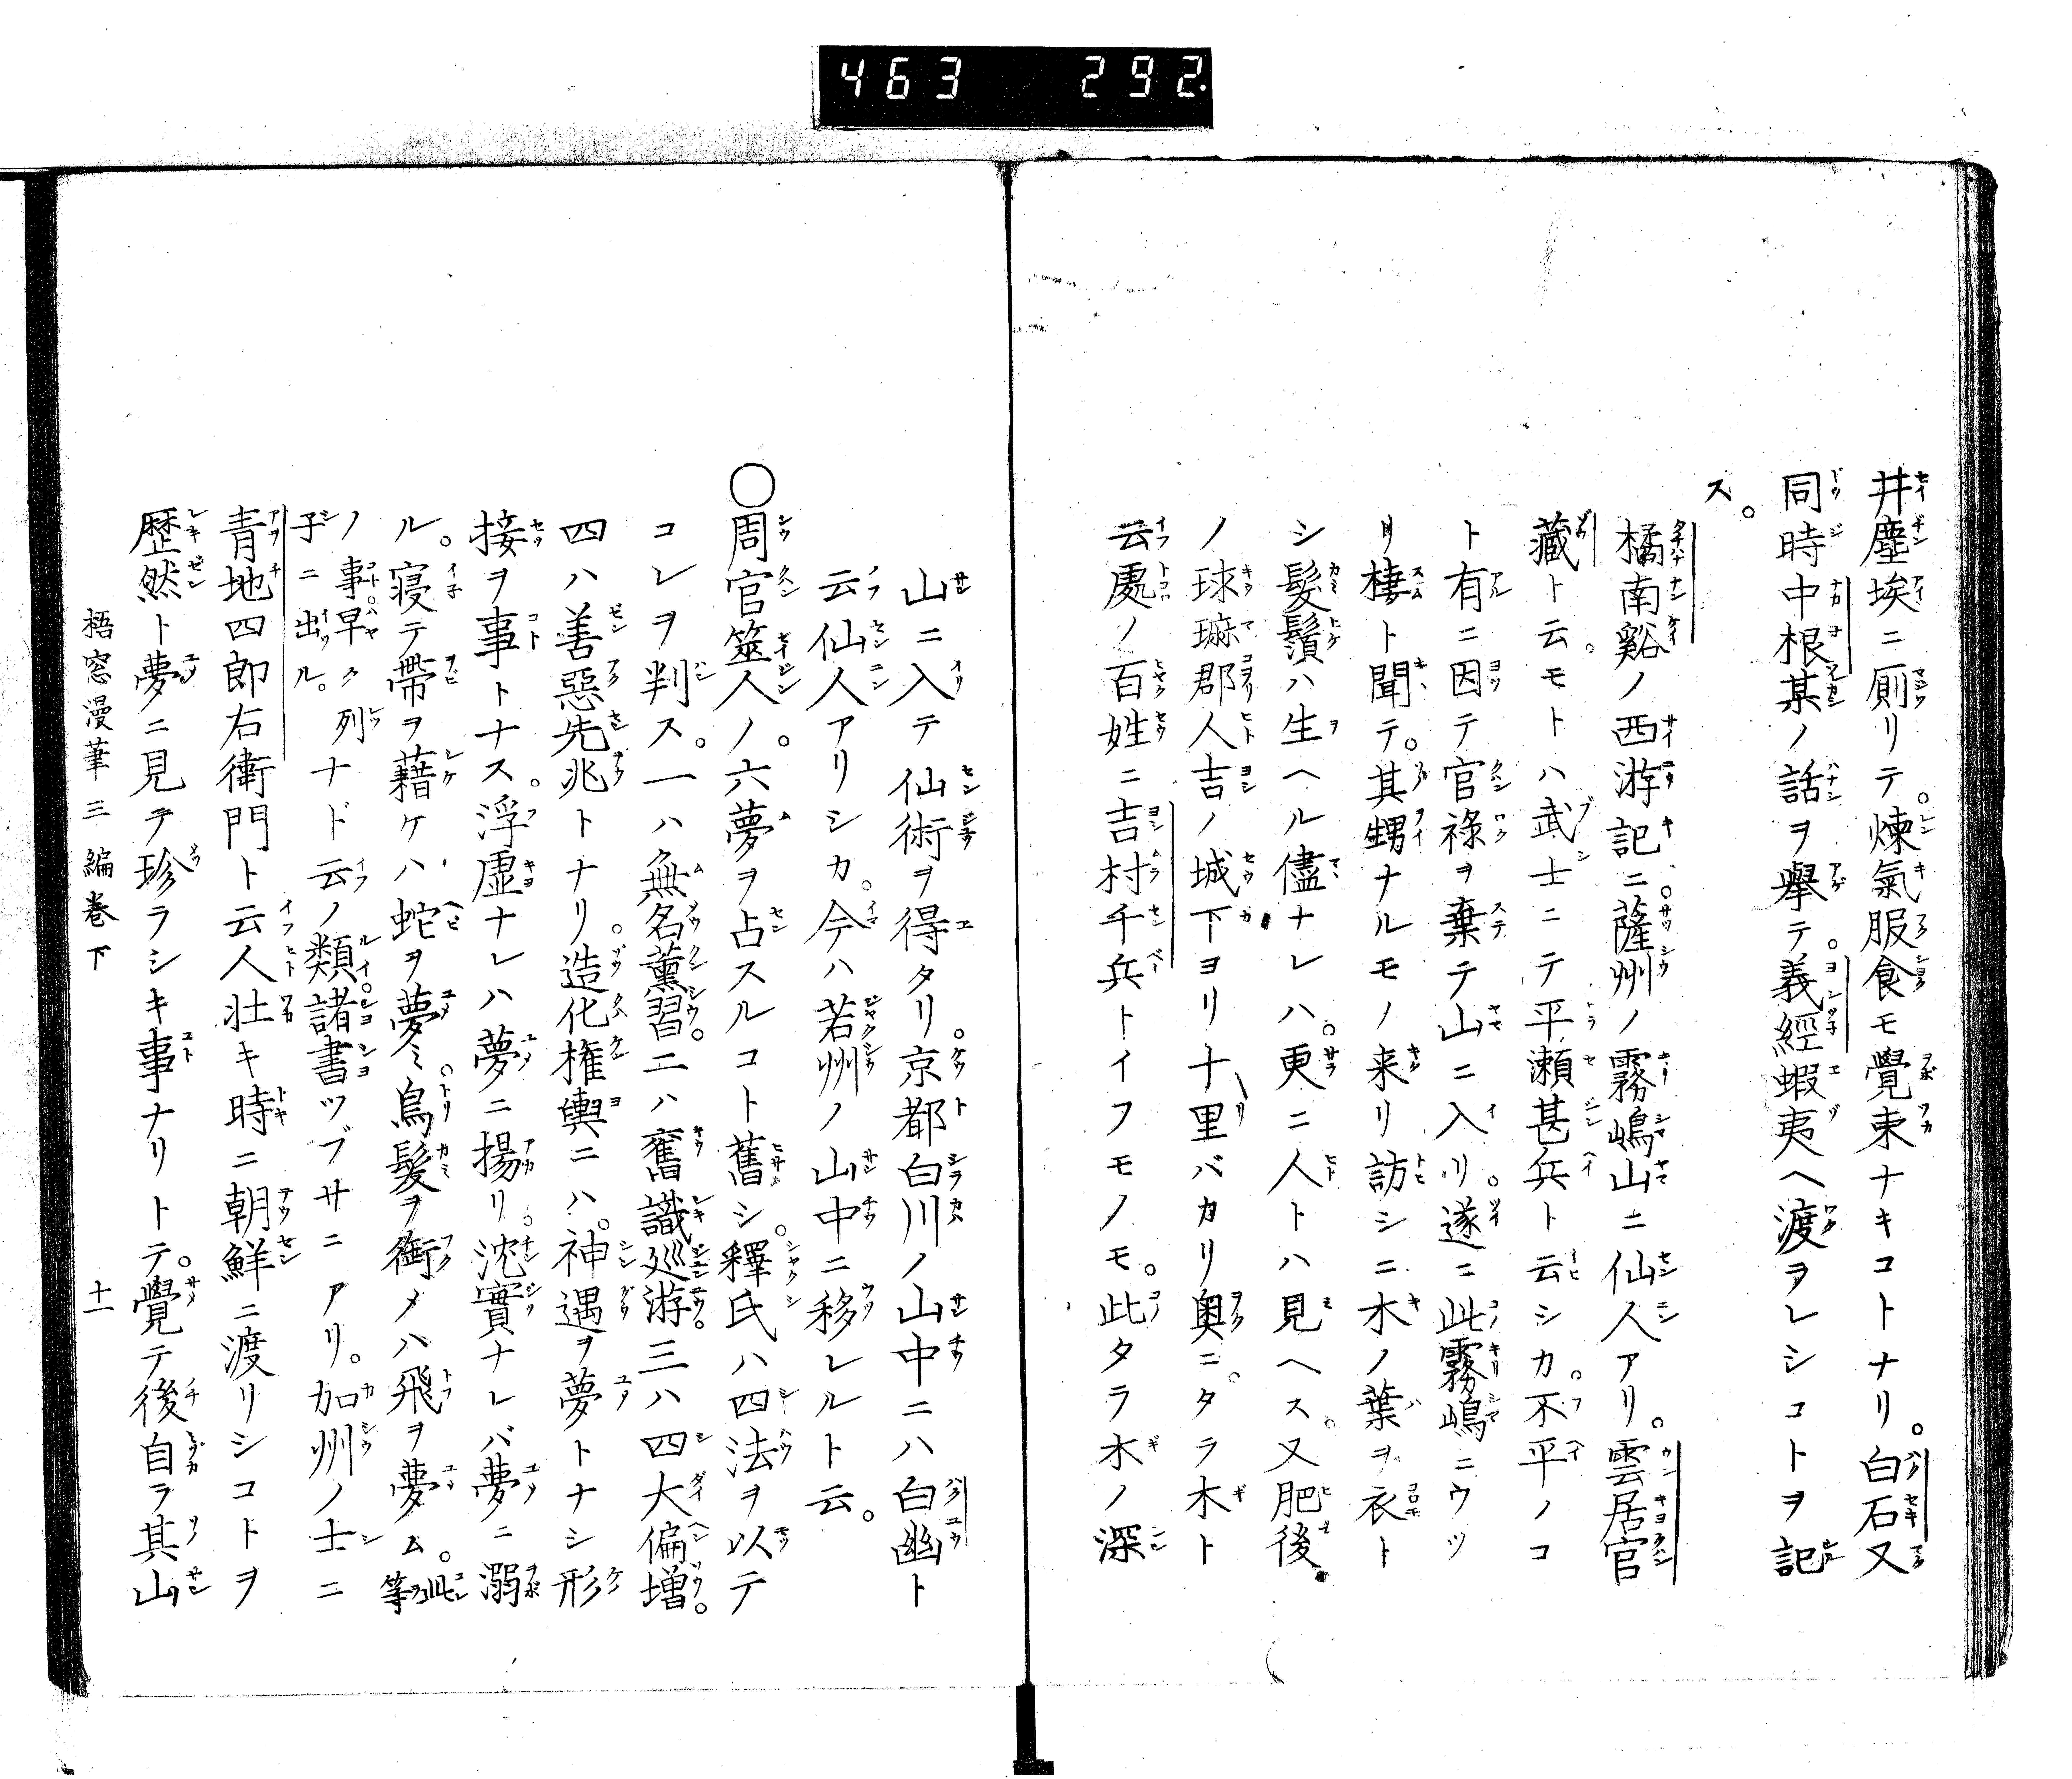 463 292.
井塵埃ニ厠リテ。煉氣服食モ覺束ナキコトナリ。白石又
同時中根某ノ話ヲ擧テ。義經蝦夷ヘ渡ヲレシコトヲ記
ス。
橘南谿ノ西游記ニ。薩州ノ霧嶋山ニ仙人アリ。雲居官
藏ト云。モトハ武士ニテ平瀬甚兵ト云シカ。不平ノコ
ト有ニ因テ官祿ヲ棄テ山ニ入リ。遂ニ此霧嶋ニウツ
リ棲ト聞テ。其甥ナルモノ来リ訪シニ木ノ葉ヲ衣ト
シ髮鬚ハ生ヘル儘ナレハ。更ニ人トハ見ヘス。又肥後
ノ球麻郡人吉ノ城下ヨリ十里バカリ奥ニ。タラ木ト
云處ノ百姓ニ吉村千兵トイフモノモ。此タラ木ノ深
山ニ入テ仙術ヲ得タリ。京都白川ノ山中ニハ白幽ト
云仙人アリシカ。今ハ若州ノ山中ニ移レルト云。
○周官筮人ノ。六夢ヲ占スルコト舊シ。釋氏ハ四法ヲ以テ
コレヲ判ス。一ハ無名薰習。二ハ舊識巡游。三ハ四大偏増。
四ハ善惡先兆トナリ。造化権輿ニハ。神遇ヲ夢トナシ形
接ヲ事トナス。浮虚ナレハ夢ニ揚リ。沈實ナレバ夢ニ溺
ル。寝テ帶ヲ藉ケハ蛇ヲ夢ミ。鳥髮ヲ銜メハ飛ヲ夢ム。此等
ノ事。早ク列子ニ出ル。ナド云ノ類。諸書ツブサニアリ。加州ノ士ニ
青地四郎右衛門ト云人壮キ時ニ朝鮮ニ渡リシコトヲ
歴然ト夢ニ見テ珍ラシキ事ナリトテ。覺テ後自ラ其山
梧窓漫筆三編卷下 十一